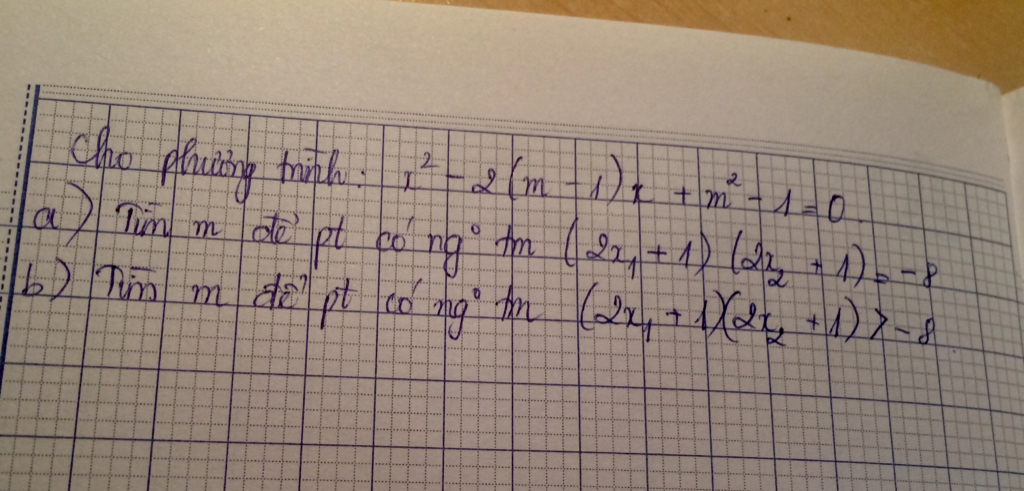 Cho phương trình: x² - 2(m - 1)x + m² - 1 = 0.
a) Tìm m để pt có ng° tm (2x₁ + 1)(2x₂ + 1) = -8
b) Tìm m để pt có ng° tm (2x₁ + 1)(2x₂ + 1) > -8.